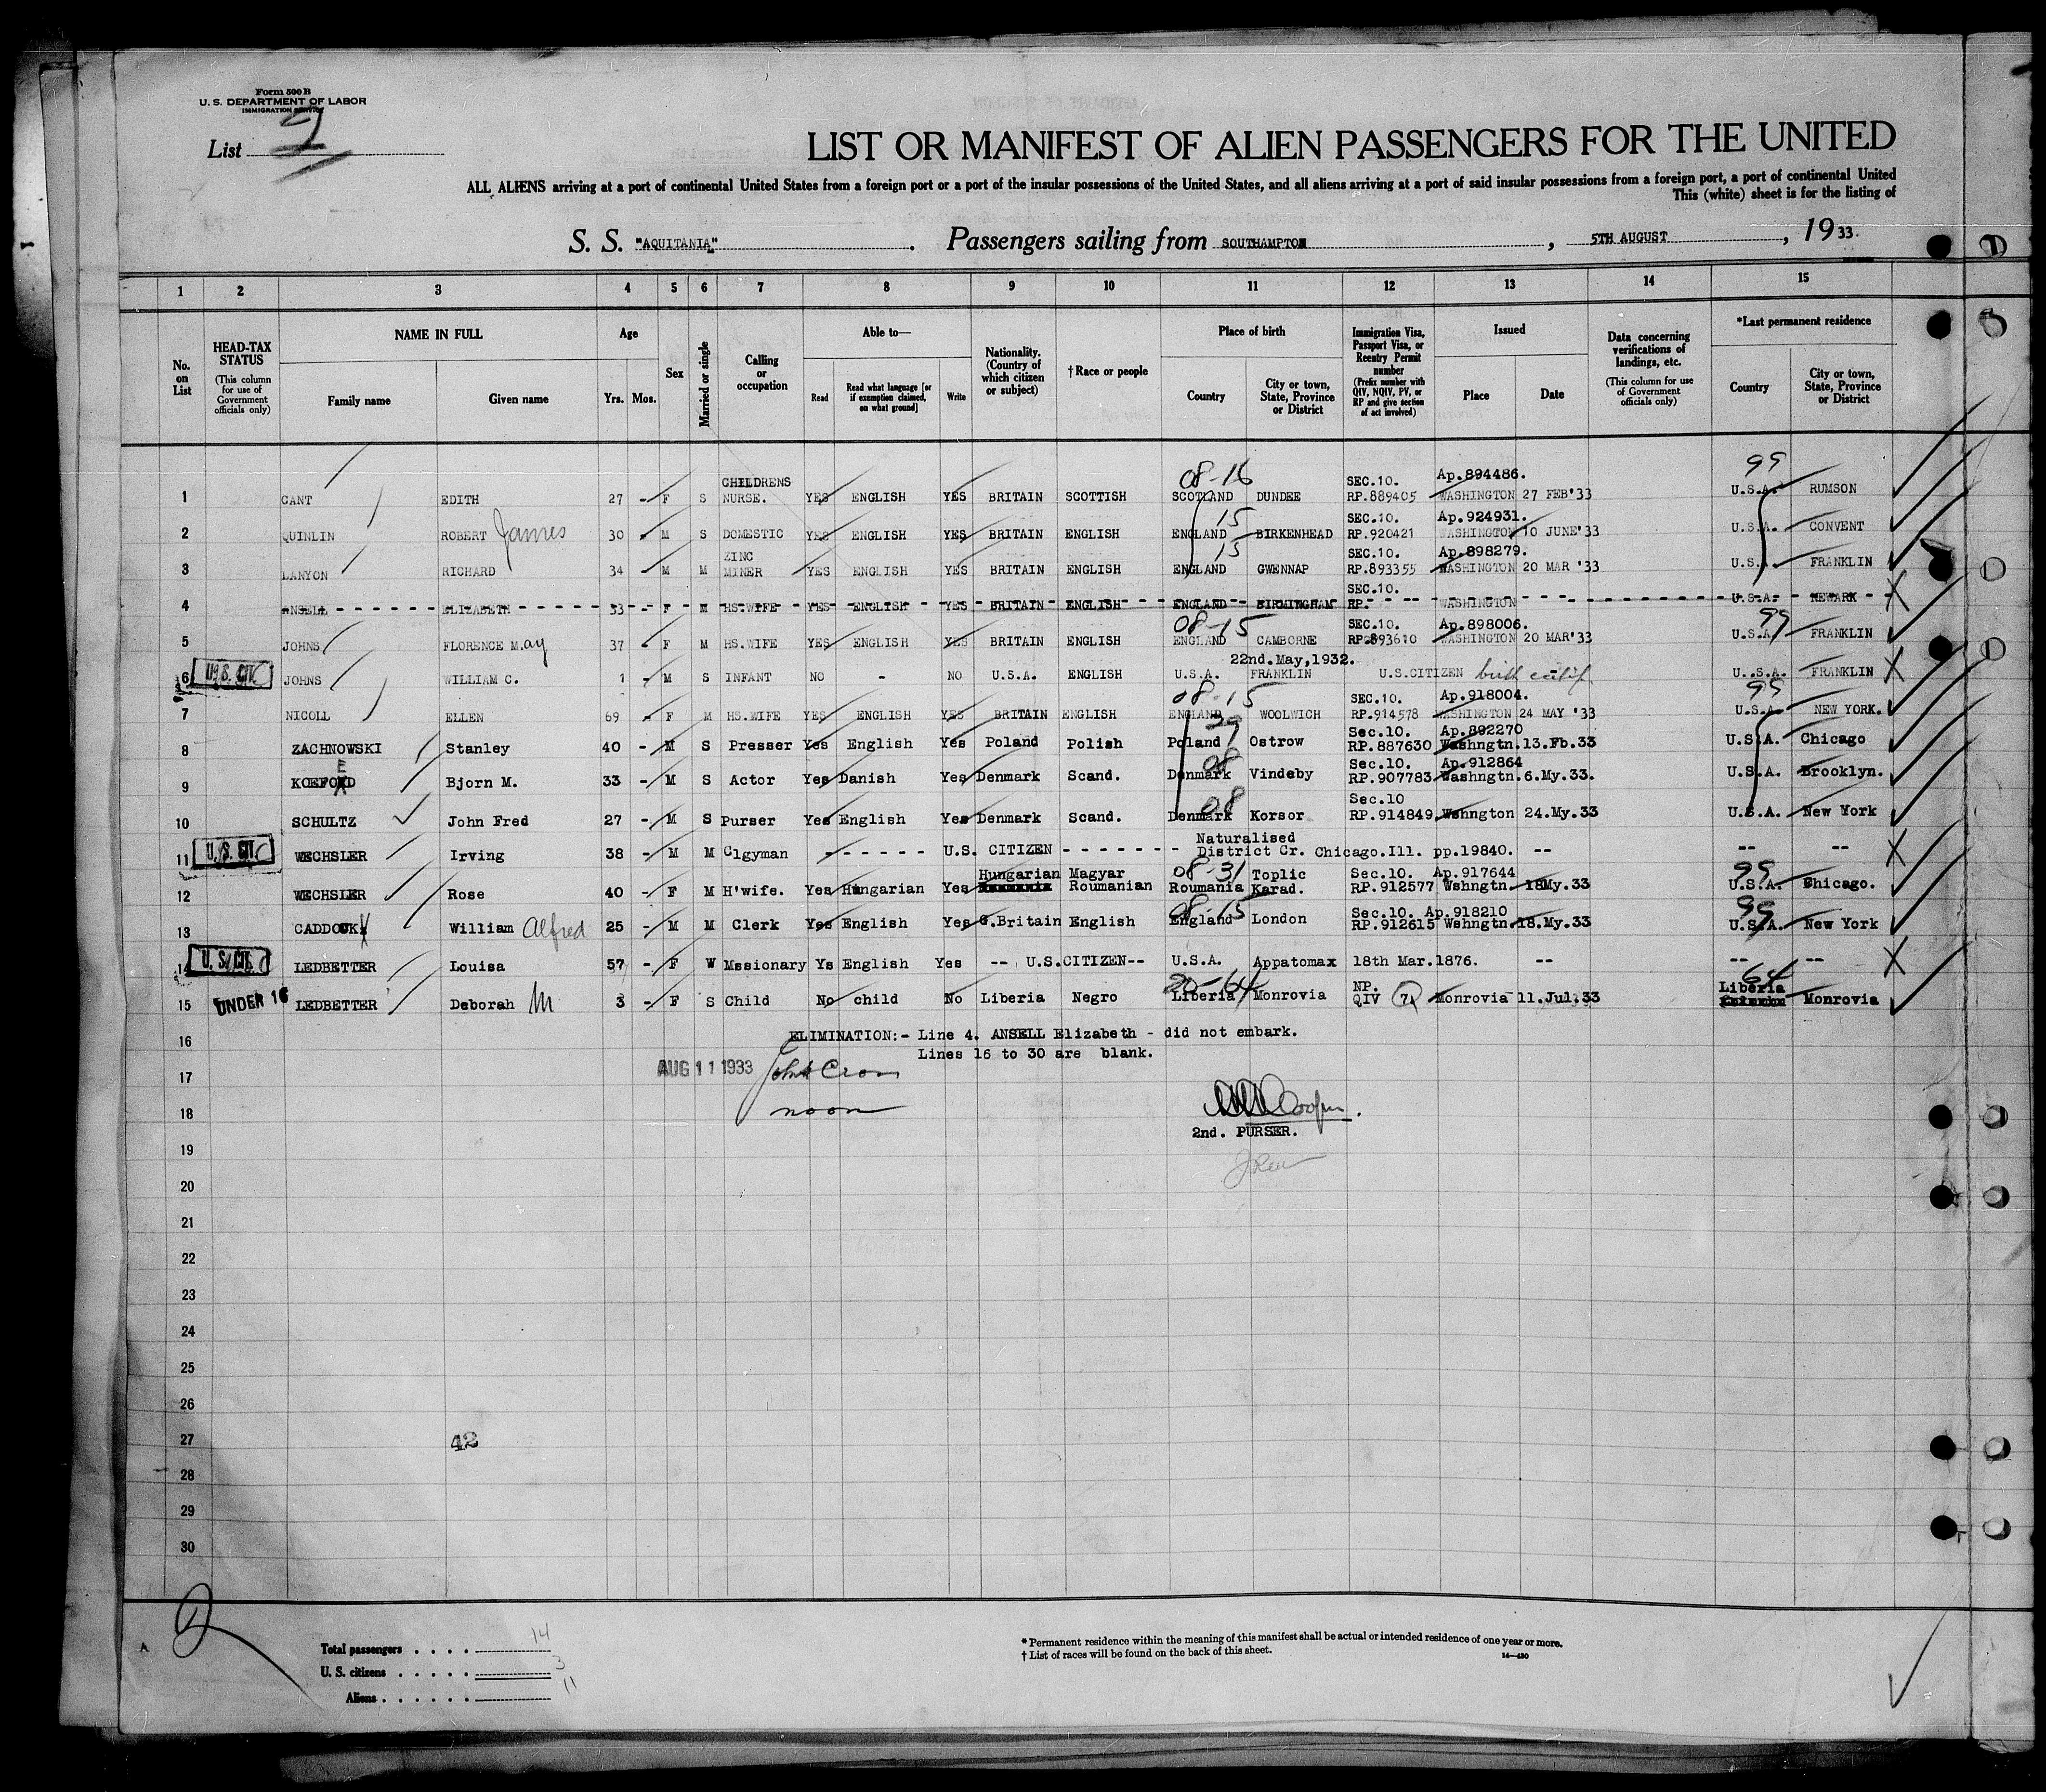 Form 500 B
U. S. DEPARTMENT OF LABOR
IMMIGRATION SERVICE
List 9
LIST OR MANIFEST OF ALIEN PASSENGERS FOR THE UNITED
ALL ALIENS arriving at a port of continental United States from a foreign port or a port of the insular possessions of the United States, and all aliens arriving at a port of said insular possessions from a foreign port, a port of continental United
This (white) sheet is for the listing of
S. S. "AQUITANIA" . Passengers sailing from SOUTHAMPTON , 5TH AUGUST , 1933.
1 2 3 4 5 6 7 8 9 10 11 12 13 14 15
No. on List
HEAD-TAX STATUS (This column for use of Government officials only)
NAME IN FULL Family name Given name
Age Yrs. Mos.
Sex
Married or single
Calling or occupation
Able to— Read Read what language [or if exemption claimed, on what ground] Write
Nationality. (Country of which citizen or subject)
†Race or people
Place of birth Country City or town, State, Province or District
Immigration Visa, Passport Visa, or Reentry Permit number (Prefix number with QIV, NQIV, PV, or RP and give section of act involved)
Issued Place Date
Data concerning verifications of landings, etc. (This column for use of Government officials only)
*Last permanent residence Country City or town, State, Province or District
08-16 99
1 CANT EDITH 27 - F S CHILDRENS NURSE. YES ENGLISH YES BRITAIN SCOTTISH SCOTLAND DUNDEE SEC.10. RP.889405 Ap.894486. WASHINGTON 27 FEB'33 U.S.A. RUMSON
15
2 QUINLIN ROBERT James 30 - M S DOMESTIC YES ENGLISH YES BRITAIN ENGLISH ENGLAND BIRKENHEAD SEC.10. RP.920421 Ap.924931. WASHINGTON 10 JUNE'33 U.S.A. CONVENT
15
3 LANYON RICHARD 34 - M M ZINC MINER YES ENGLISH YES BRITAIN ENGLISH ENGLAND GWENNAP SEC.10. RP.893355 Ap.898279. WASHINGTON 20 MAR '33 U.S.A. FRANKLIN
4 ANSELL ELIZABETH 33 - F M HS.WIFE YES ENGLISH YES BRITAIN ENGLISH ENGLAND BIRMINGHAM SEC.10. RP. WASHINGTON U.S.A. NEWARK X
08-15 99
5 JOHNS FLORENCE M.ay 37 - F M HS.WIFE YES ENGLISH YES BRITAIN ENGLISH ENGLAND CAMBORNE SEC.10. RP.893610 Ap.898006. WASHINGTON 20 MAR'33 U.S.A. FRANKLIN
6 U.S. CIT. JOHNS WILLIAM C. 1 - M S INFANT NO - NO U.S.A. ENGLISH U.S.A. FRANKLIN 22nd.May,1932. U.S.CITIZEN birth certif U.S.A. FRANKLIN X
08-15 99
7 NICOLL ELLEN 69 - F M HS.WIFE YES ENGLISH YES BRITAIN ENGLISH ENGLAND WOOLWICH SEC.10. RP.914578 Ap.918004. WASHINGTON 24 MAY '33 U.S.A. NEW YORK.
8 ZACHNOWSKI Stanley 40 - M S Presser Yes English Yes Poland Polish Poland Ostrow Sec.10. RP.887630 Ap.892270 Washngtn.13.Fb.33 U.S.A. Chicago
08
9 KOEFOED Bjorn M. 33 - M S Actor Yes Danish Yes Denmark Scand. Denmark Vindeby Sec.10. RP.907783 Ap.912864 Washngtn.6.My.33. U.S.A. Brooklyn.
08
10 SCHULTZ John Fred 27 - M S Purser Yes English Yes Denmark Scand. Denmark Korsor Sec.10 RP.914849 Wshngton 24.My.33 U.S.A. New York
11 U.S. CIT. WECHSLER Irving 38 - M M Clgyman - - - - - - U.S. CITIZEN - - - - - - - Naturalised District Cr. Chicago.Ill. pp.19840. -- -- -- X
08-31 99
12 WECHSLER Rose 40 - F M H'wife. Yes Hungarian Yes Hungarian Magyar Roumanian Roumania Toplic Karad. Sec.10. RP.912577 Ap.917644 Wshngtn. 18My.33 U.S.A. Chicago.
08-15 99
13 CADDOCK William Alfred 25 - M M Clerk Yes English Yes G.Britain English England London Sec.10. RP.912615 Ap.918210 Wshngtn.18.My.33 U.S.A. New York
14 U.S. CIT. LEDBETTER Louisa 57 - F W Mssionary Ys English Yes -- U.S.CITIZEN-- U.S.A. Appatomax 18th Mar.1876. -- -- -- X
20-64 64
15 UNDER 16 LEDBETTER Deborah M 3 - F S Child No child No Liberia Negro Liberia Monrovia NP. QIV 7 Monrovia 11.Jul.33 Liberia Monrovia
16 ELIMINATION:- Line 4. ANSELL Elizabeth - did not embark.
Lines 16 to 30 are blank.
17 AUG 11 1933
18 noon
2nd. PURSER.
19
20
21
22
23
24
25
26
27 42
28
29
30
Total passengers . . . . 14
U. S. citizens . . . . . 3
Aliens . . . . . . 11
* Permanent residence within the meaning of this manifest shall be actual or intended residence of one year or more.
† List of races will be found on the back of this sheet.
14—430